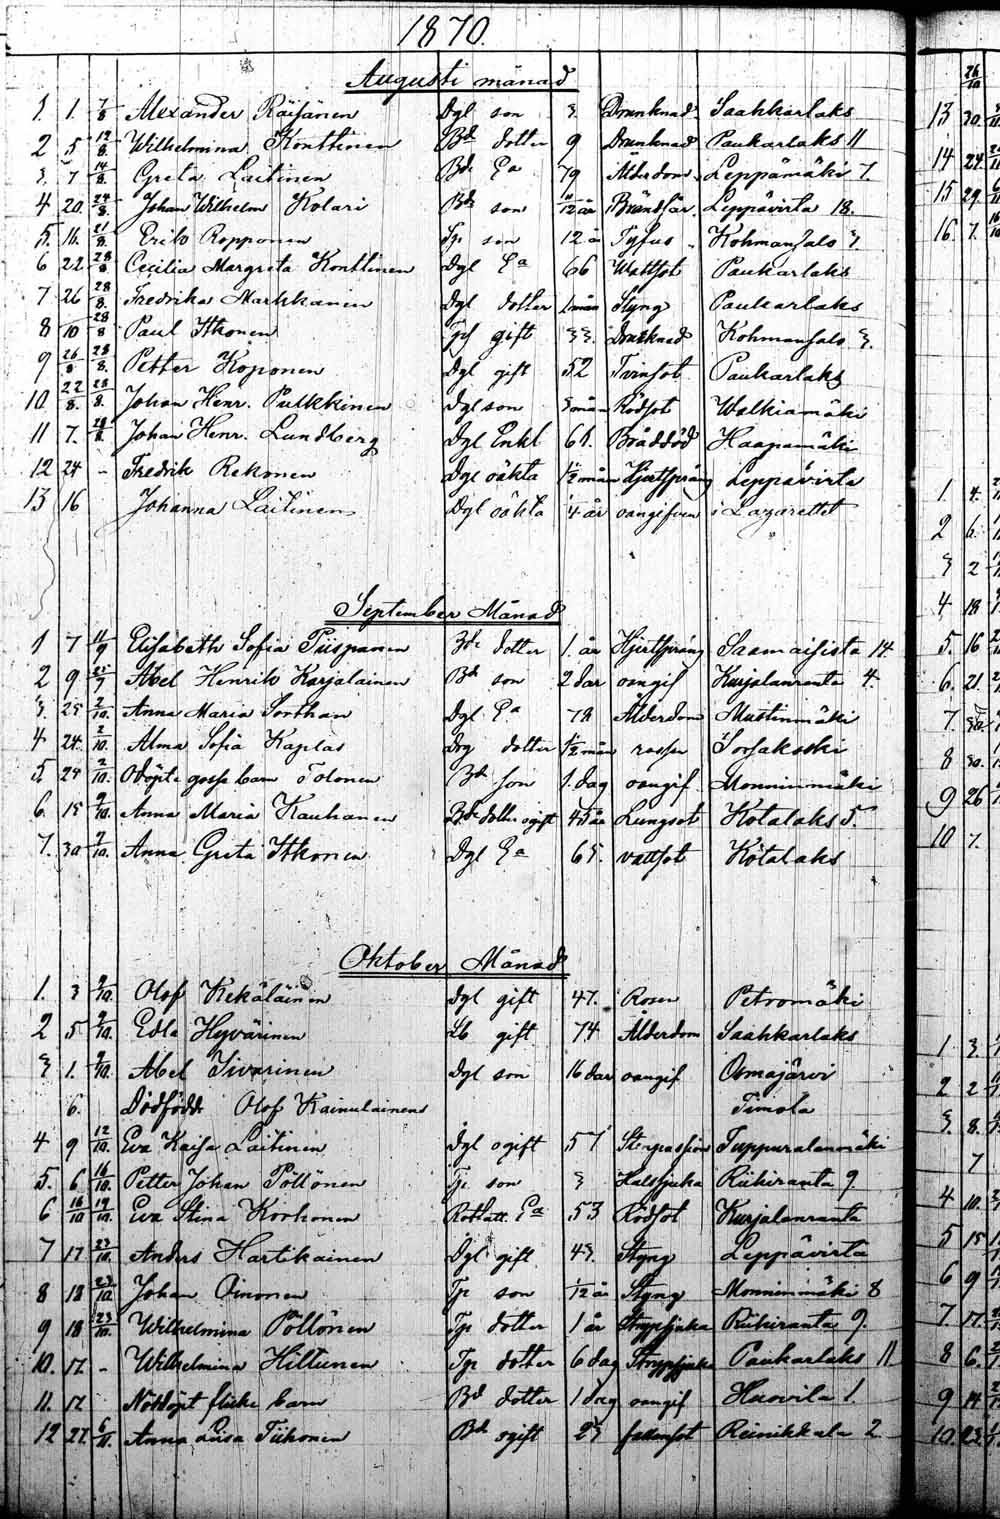 1870.
Augusti månad
1. 1. 7/8 Alexander Räisänen Dgl son 3 Drunknad Saahkarlaks
2 5 12/8. Wilhelmina Konttinen Bd dotter 9 Drunknad Paukarlaks 11
3. 7 14/8. Greta Laitinen Bd Ea 79 Ålderdom Leppämäki 7.
4 20. 24/8. Johan Wilhelm Kolari Bd son 11/12 år Leppävirta 18.
5. 16. 21/8. Erik Ropponen Tp son 12 å Tyfus Kohmansalo 3.
6 22 28/8 Cecilia Margreta Konttinen Dgl Ea 66 Wattsot Paukarlaks
7 26 28/8. Fredrika Markkanen Dgl dotter 1 mån Styng Paukarlaks
8 10 28/8 Paul Itkonen gift 33. Drunknad Kohmansalo 3.
9 26/8 28/8. Petter Koponen Dgl gift 52 Tvinsot Paukarlaks
10. 22/8. 28/8. Johan Henr. Pulkkinen Dgl son 3 mån Rödsot Walkiamäki
11 7. 28/8. Johan Henr. Lundberg Dgl Enkl 61. Bråddöd Haapamäki
12 24 - Fredrik Rekonen Dgl oäkta 1/2 mån Hjertsprång Leppävirta
13 16 Johanna Laitinen Dgl oäkta 1/4 år oangifven i Lazarettet
September Månad
1 7 11/9 Elisabeth Sofia Piispanen Bd dotter 1. år Hjertsprång Saamaisista 14.
2 9 25/9 Abel Henrik Karjalainen Bd son 2 dar oangif Kurjalanranta 4.
3. 25 2/10. Anna Maria Sorthan Dgl Ea 78 Ålderdom Mustinmäki
4 24. 2/10. Alma Sofia Kaplas dotter 1/2 mån rosen Sorsakoski
5. 24 2/10. Odöpte gosse barn Tolonen Bd son 1. dag oangif Monninmäki
6. 15 9/10. Anna Maria Kauhanen Bd dotter ogift 45 år Lungsot Kotalaks 5.
7. 30 9/10. Anna Greta Itkonen Dgl Ea 65. vattsot Kotalaks
Oktober Månad
1. 3 9/10. Olof Kekäläinen Dgl gift 47. Rosen Petromäki
2 5 9/10. Edla Hyvärinen Lb gift 74 Ålderdom Saahkarlaks
3 1. 9/10. Abel Iivarinen Dgl son 16 dar oangif Osmajärvi
6. Dödfödd Olof Kainulainen Timola
4 9 12/10. Eva Kaisa Laitinen Dgl ogift 57 Tuppuralanmäki
5. 6 16/10. Petter Johan Pöllönen Tp son 3 Halssjuka Riihiranta 9
6 16/10 19/10. Eva Stina Korhonen Rotfatt. Ea 53 Rödsot Kurjalanranta
7 17 23/10. Anders Hartikainen Dgl gift 43. Styng Leppävirta
8 18 23/10 Johan Oinonen Tp son 1/12 år Styng Monninmäki 8
9 18 23/10. Wilhelmina Pöllönen Tp dotter 1 år Strypsjuka Riihiranta 9.
10. 17. - Wilhelmina Hiltunen Tp dotter 6 dag Strypsjuka Paukarlaks 11
11. 17. Nöddöpt flicke barn Bd dotter 1 dag oangif Huovila 1.
12 27. 6/11. Anna Lusa Tiihonen Bd ogift 23 fallansot Reinikkala 2
26/10
13 30.
14 24
15 29.
16. 7.
1 4.
2 6.
3 2
4 18
5. 16
6. 21.
7. 30.
8 30.
9 26
10 7.
1 3.
2 2
3. 8.
7
4 10.
5 15
6 9
7 17.
8 6.
9 14.
10. 23.